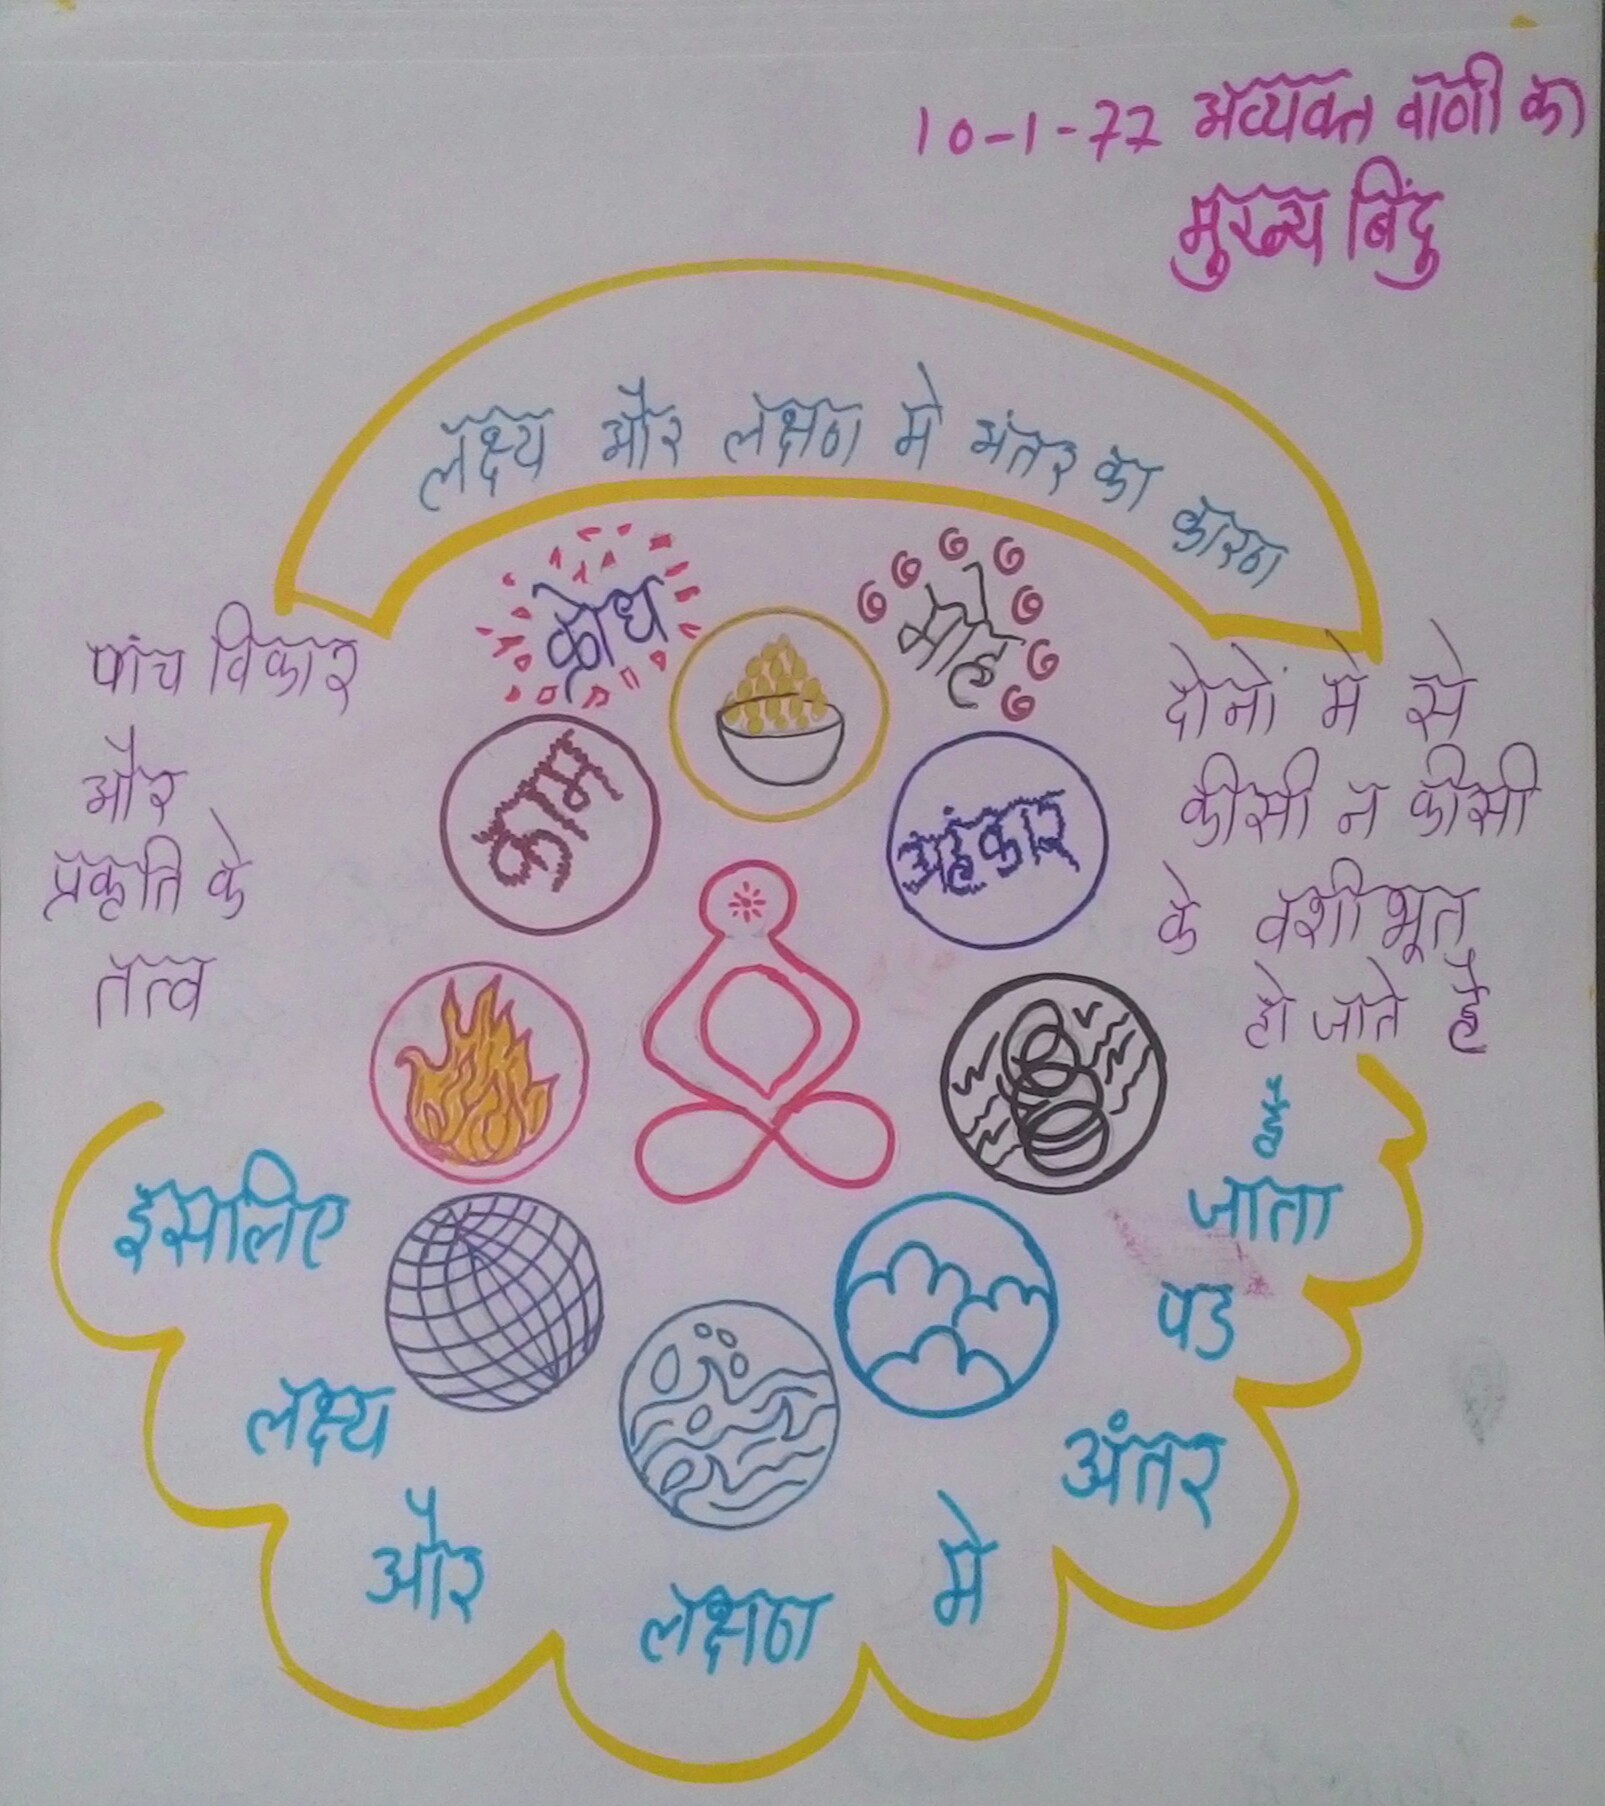 10-1-77 अव्यक्त वाणी का
मुख्य बिंदु
लक्ष्य और लक्षण मे अंतर का कारण
क्रोध
मोह
काम
अहंकार
पांच विकार
और
प्रकृति के
तत्व
दोनों मे से
कीसी न कीसी
के वशीभूत
हो जाते है
इसलिए
लक्ष्य
और
लक्षण
मे
अंतर
पड
जाता
है